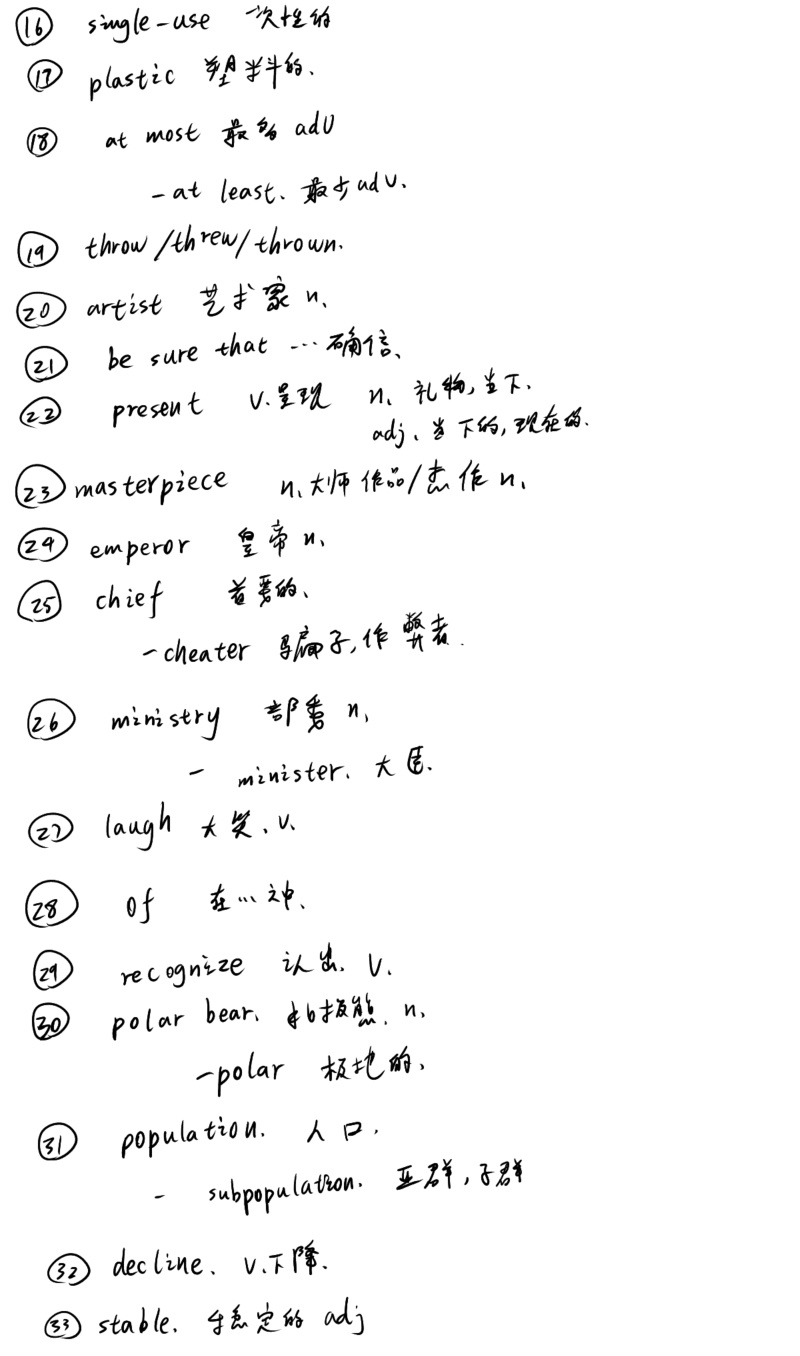 ⑯ single-use 一次性的
⑰ plastic 塑料的.
⑱ at most 最多 adv
- at least. 最少 adv.
⑲ throw/threw/thrown.
⑳ artist 艺术家 n.
㉑ be sure that …确信.
㉒ present v.呈现 n. 礼物,当下.
adj. 当下的,现在的.
㉓ masterpiece n.大师作品/杰作 n.
㉔ emperor 皇帝 n.
㉕ chief 首要的.
- cheater 骗子,作弊者.
㉖ ministry 部委 n.
- minister. 大臣.
㉗ laugh 大笑. v.
㉘ of 在…之中.
㉙ recognize 认出. v.
㉚ polar bear. 北极熊. n.
- polar 极地的.
㉛ population. 人口.
- subpopulation. 亚群,子群
㉜ decline. v.下降.
㉝ stable. 稳定的 adj